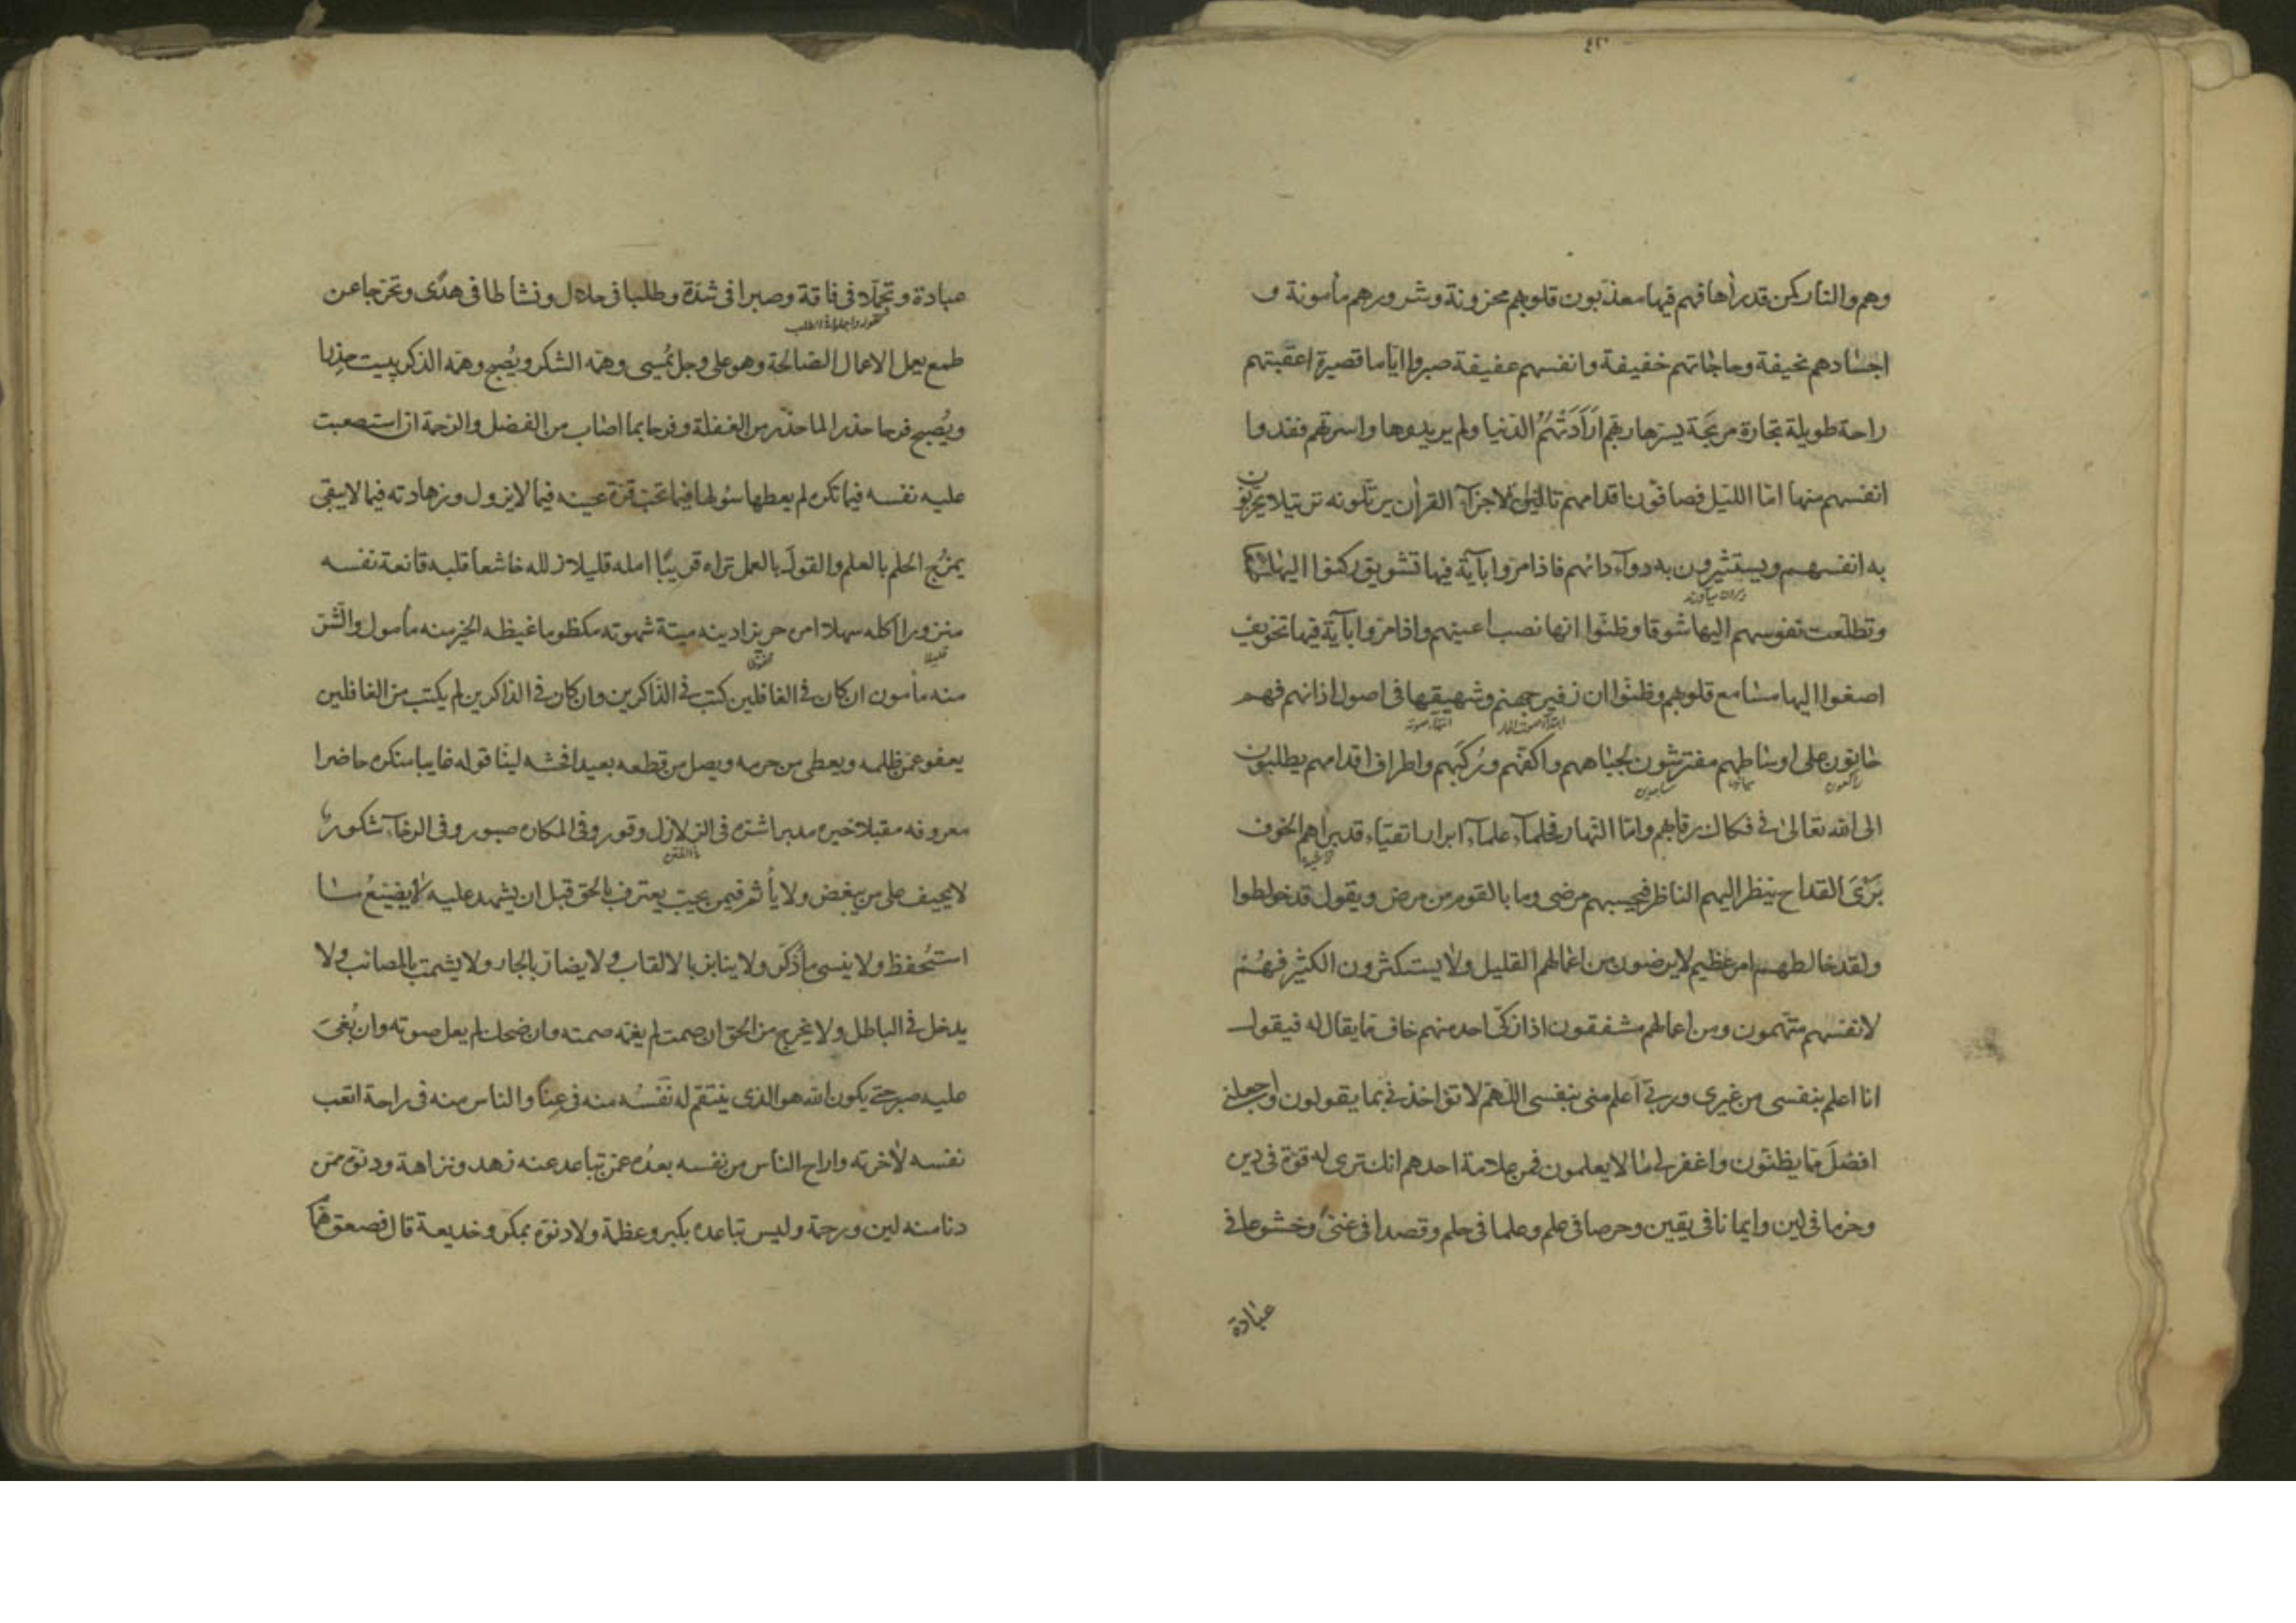 وهم والنار كمن قد رآها فهم فيها معذبون قلوبهم محزونة وشرورهم مأمونة و
اجسادهم نحيفة وحاجاتهم خفيفة وانفسهم عفيفة صبروا اياما قصيرة اعقبتهم
راحة طويلة تجارة مربحة يسرها ربهم ارادتهم الدنيا ولم يريدوها واسرتهم ففدوا
انفسهم منها امّا الليل فصافّون اقدامهم تالين لاجزآء القرآن يرتّلونه ترتيلا يحزنون
به انفسهم ويستثيرون به دوآء دائهم فاذا مروا بآية فيها تشويق ركنوا اليها طمعا
وتطلّعت نفوسهم اليها شوقا وظنّوا انها نصب اعينهم واذا مرّوا بآية فيها تخويف
اصغوا اليها مسامع قلوبهم وظنّوا ان زفير جهنم وشهيقها فى اصول اذانهم فهم
حانون على اوساطهم مفترشون لجباههم واكفّهم ورُكَبهم واطراف اقدامهم يطلبون
راكعون
ساجدين
الى الله تعالى فى فكاك رقابهم وامّا النّهار فحلمآء علمآء ابرار اتقيآء قد براهم الخوف
بَرْىَ القداح ينظر اليهم الناظر فيحسبهم مرضى وما بالقوم من مرض ويقول قد خولطوا
ولقد خالطهم امر عظيم لا يرضون من اعمالهم القليل ولا يستكثرون الكثير فهُم
لانفسهم متّهمون ومن اعمالهم مشفقون اذا زكّى احد منهم خاف مما يقال له فيقول
انا اعلم بنفسى من غيرى وربّى اعلم منى بنفسى اللّهمّ لا تؤاخذنى بما يقولون واجعلنى
افضلَ مما يظنّون واغفر لى ما لا يعلمون فمن علامة احدهم انك ترى له قوّة فى دين
وحزما فى لين وايمانا فى يقين وحرصا فى علم وعلما فى حلم وقصدا فى غنى وخشوعا فى
عبادة
عبادة وتجمّلا فى فاقة وصبرا فى شدّة وطلبا فى حلال ونشاطا فى هدًى وتحرّجا عن
طمع يعمل الاعمال الصالحة وهو على وجل يُمسى وهمّه الشكر ويُصبح وهمّه الذكر يبيت حذِرا
ويُصبح فرحا حذرا لما حذّر من الغفلة وفرحا بما اصاب من الفضل والرحمة ان استصعبت
عليه نفسه فيما تكره لم يعطها سُولها فيما تحبّ قرّة عينه فيما لا يزول وزهادته فيما لا يبقى
يمزُج الحلم بالعلم والقولَ بالعمل تراه قريبًا امله قليلا زلله خاشعا قلبه قانعة نفسه
منزورا اكله سهلا امره حريزا دينه ميتة شهوته مكظوما غيظه الخير منه مأمول والشّرّ
قليلا
منه مأمون ان كان فى الغافلين كتب فى الذّاكرين وان كان فى الذاكرين لم يكتب من الغافلين
يعفو عمّن ظلمه ويعطى من حرمه ويصل من قطعه بعيدا فحشه لينًا قوله غايبا منكره حاضرا
معروفه مقبلا خيره مدبرا شره فى الزلازل وقور وفى المكاره صبور وفى الرخآء شكور
لا يحيف على من يبغض ولا يأثم فيمن يحبّ يعترف بالحق قبل ان يشهد عليه لا يضيّعُ ما
استُحفظ ولا ينسى ما ذكّر ولا ينابز بالالقاب ولا يضارّ بالجار ولا يشمت بالمصائب ولا
يدخل فى الباطل ولا يخرج من الحق ان صمت لم يغمّه صمته وان ضحك لم يعل صوته وان بُغىَ
عليه صبر حتى يكون الله هو الذى ينتقم له نَفسُه منه فى عنآء والناس منه فى راحة اتعب
نفسه لآخرته واراح الناس من نفسه بعدُه عمّن تباعد عنه زهد ونزاهة ودنوّه ممّن
دنا منه لين ورحمة وليس تباعده بكبر وعظمة ولا دنوّه بمكر وخديعة قال فصعق همّام